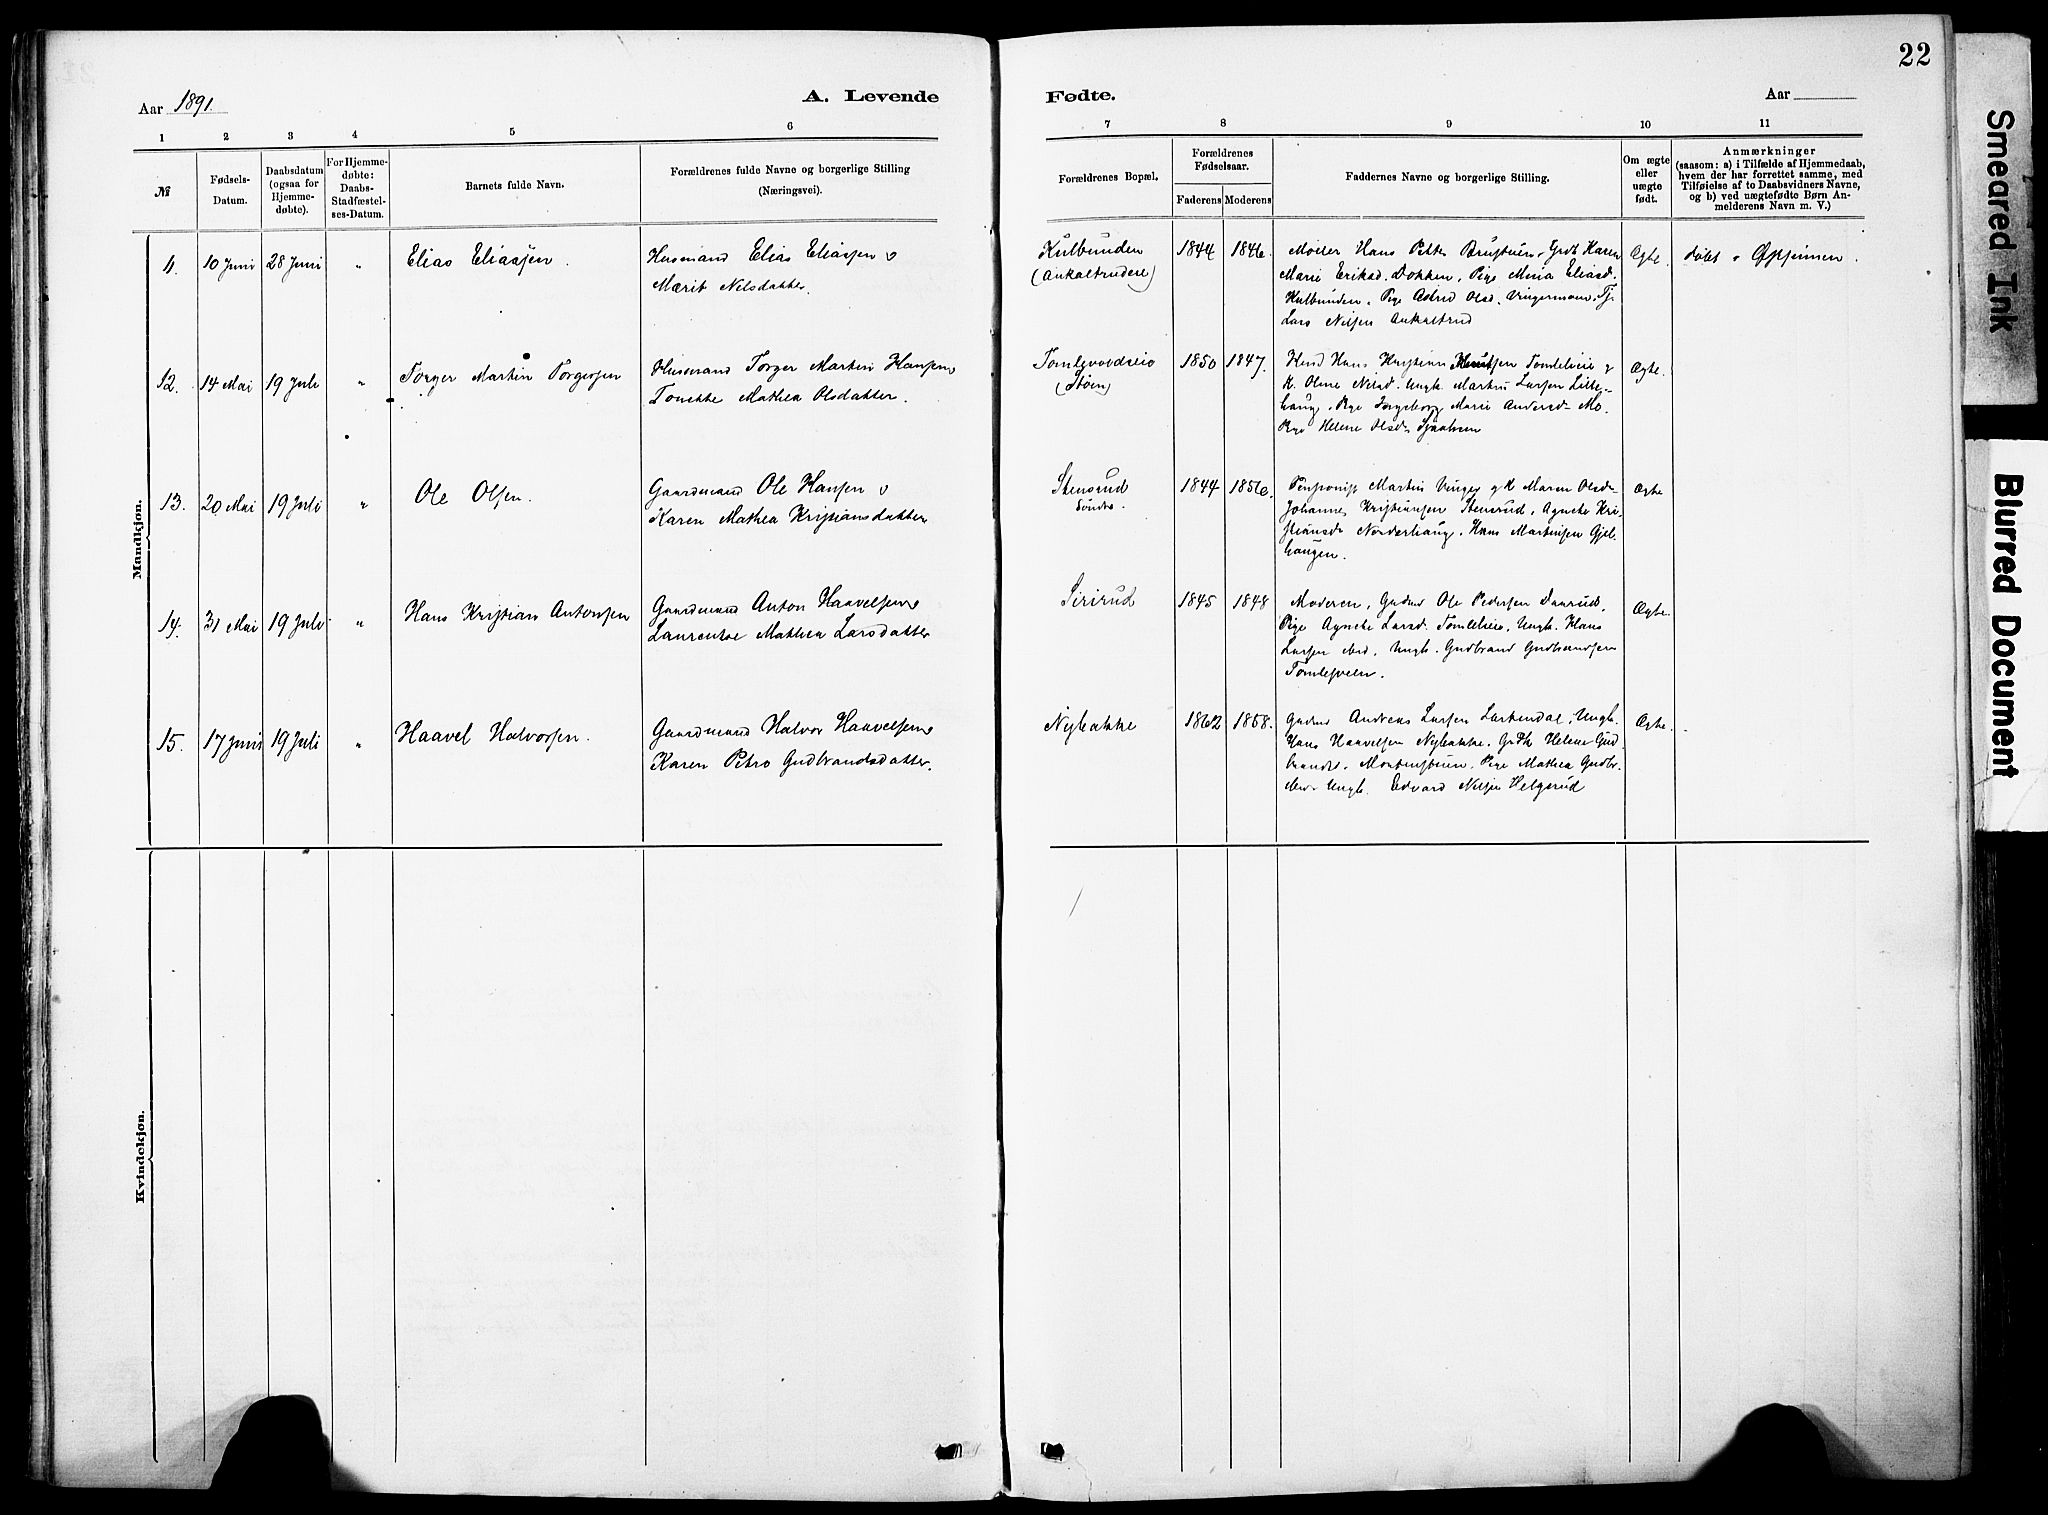 22
Aar 1891.
A. Levende
Fødte.
Aar
1 2 3 4 5 6
7 8 9 10 11
№
Fødsels-
Datum.
Daabsdatum
(ogsaa for
Hjemme-
døbte).
For Hjemme-
døbte:
Daabs-
Stadfæstel-
ses-Datum.
Barnets fulde Navn.
Forældrenes fulde Navne og borgerlige Stilling
(Næringsvei).
Forældrenes Bopæl.
Forældrenes
Fødselsaar.
Faderens Moderens
Faddernes Navne og borgerlige Stilling.
Om ægte
eller
uægte
født.
Anmærkninger
(saasom: a) i Tilfælde af Hjemmedaab,
hvem der har forrettet samme, med
Tilføielse af to Daabsvidners Navne,
og b) ved uægtefødte Børn An-
melderens Navn m. V.)
Mandkjøn.
11. 10 Juni 28 Juni " Elias Eliassen.
Husmand Elias Eliassen o
Marit Nilsdatter.
Kulbunden
(Ankaltrudeie)
1844 1846.
Moder Hans Petter Brustuen, Grdk Karen
Marie Eriksd. Dokken, Pige Mina Eliasd.
Kulbunden, Pige Astrid Olsd. Vingermoen, Tj.
Lars Nilsen Ankaltrud
Ægte.
døbt i Øypinnen.
12. 14 Mai 19 Juli " Torger Martin Torgersen
Husmand Torger Martin Hansen o
Tonette Mathea Olsdatter.
Tomlevoldseie
(Støen)
1850 1847.
Husmd Hans Kristian Knutsen Tomleleie o
K. Oline Nilsd. Ungk. Martin Larsen Lille-
haug, Pige Ingeborg Marie Andersd. Mo,
Pige Helene Olsd.
Ægte.
13. 20 Mai 19 Juli " Ole Olsen.
Gaardmand Ole Hansen o
Karen Mathea Kristiansdatter
Stensrud
søndre.
1844 1856.
Martin Vinger og K Maren Olsd.
Johannes Kristiansen Stensrud, Agnete Kri-
stiansd. Norderhaug, Hans Martinsen Gjel-
haugen.
Ægte
14. 31 Mai 19 Juli " Hans Kristian Antonsen
Gaardmand Anton Haavelsen o
Laurentse Mathea Larsdatter
Sirirud
1845 1848
Moderen, Gudm Ole Pedersen Daarud,
Pige Agnete Larsd. Tomleleie, Ungk. Hans
Larsen ibid, Ungk. Gudbrand Gudbrandsen
Tomlesveen.
Ægte.
15. 17 Juni 19 Juli " Haavel Halvorsen.
Gaardmand Halvor Haavelsen o
Karen Petra Gudbrandsdatter.
Nybakke
1862 1858.
Gudm Andreas Larsen Larsendal, Ungk.
Hans Haavelsen Nybakke, Grdk Helene Gud-
brandsd. Mortenstuen, Pige Mathea Gudbr.
ibid. Ungk. Edvard Nilsen Helgerud
Ægte.
Kvindekjøn.
Smeared Ink
Blurred Document